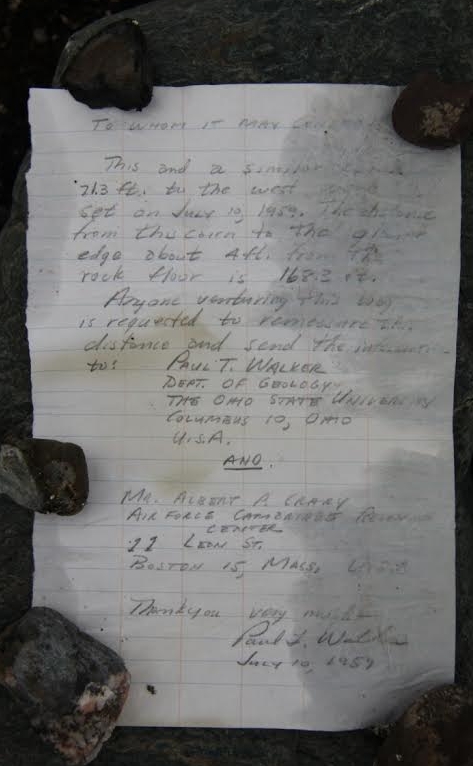 TO WHOM IT MAY CONCERN
This and a similar cairn
21.3 ft. to the west were
set on July 10, 1959. The distance
from this cairn to the glacier
edge about 4 ft. from the
rock floor is 168.3 ft.
Anyone venturing this way
is requested to remeasure this
distance and send the information
to: PAUL T. WALKER
DEPT. OF GEOLOGY
THE OHIO STATE UNIVERSITY
COLUMBUS 10, OHIO
U.S.A.
AND
MR. ALBERT P. CRARY
AIR FORCE CAMBRIDGE RESEARCH
CENTER
11 LEON ST.
BOSTON 15, MASS, U.S.A.
Thankyou very much
Paul T. Walker
July 10, 1959